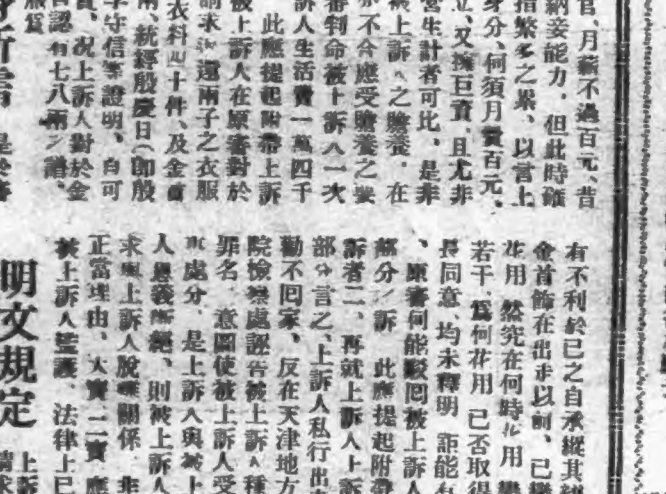 官、月薪不過百元、昔
納妾能力，但此時確
指繁多之累、以言上
身分、何須月費百元、
立、又擁巨資，且尤非
營生計者可比、是非
被上訴人之贍養，在
亦不合應受贍養之要
審判命被上訴人一次
訴人生活費一萬四千
此應提起附帶上訴
被上訴人在原審對於
請求返還兩子之衣服
衣料四十件、及金首
兩、統經殷慶日（卽殷
李守信等證明、自可
實，况上訴人對於金
否認有七八兩之譜、
服爲
所云
有不利於已之自承縱其
金首飾在出走以前、已
花用 然究在何時化用
若干 爲何花用 已否取得
長同意、均未釋明 詎能
、原審何能駁囘被上訴人
部分之訴 此應提起附帶
訴者二、再就上訴人上訴
部分言之、上訴人私行出
勸不囘家、反在天津地方
院檢察處誣告被上訴人種
罪名 意圖使被上訴人受
處分、是上訴人與被上
人恩義斷絕、則被上訴人
求與上訴人脫離關係 非
正當理由、大寶二寶 應
被上訴人監護、法律上已
明文規定
上訴
請求